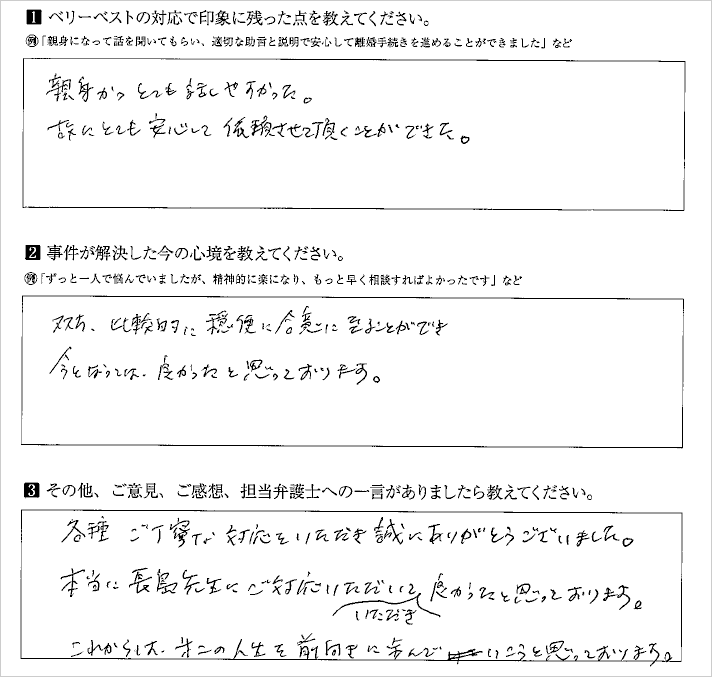 1 ベリーベストの対応で印象に残った点を教えてください。
例「親身になって話を聞いてもらい、適切な助言と説明で安心して離婚手続きを進めることができました」など
親身かつとても話しやすかった。
故にとても安心して依頼させて頂くことができた。
2 事件が解決した今の心境を教えてください。
例「ずっと一人で悩んでいましたが、精神的に楽になり、もっと早く相談すればよかったです」など
双方、比較的に穏便に合意に至ることができ
今となっては、良かったと思っております。
3 その他、ご意見、ご感想、担当弁護士への一言がありましたら教えてください。
各種ご丁寧な対応をいただき誠にありがとうございました。
本当に長島先生にご対応いただいて良かったと思っております。
いただき
これからは、第二の人生を前向きに歩んでいこうと思っております。